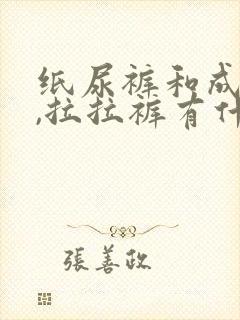 纸尿裤和成
,拉拉裤有什
張善政